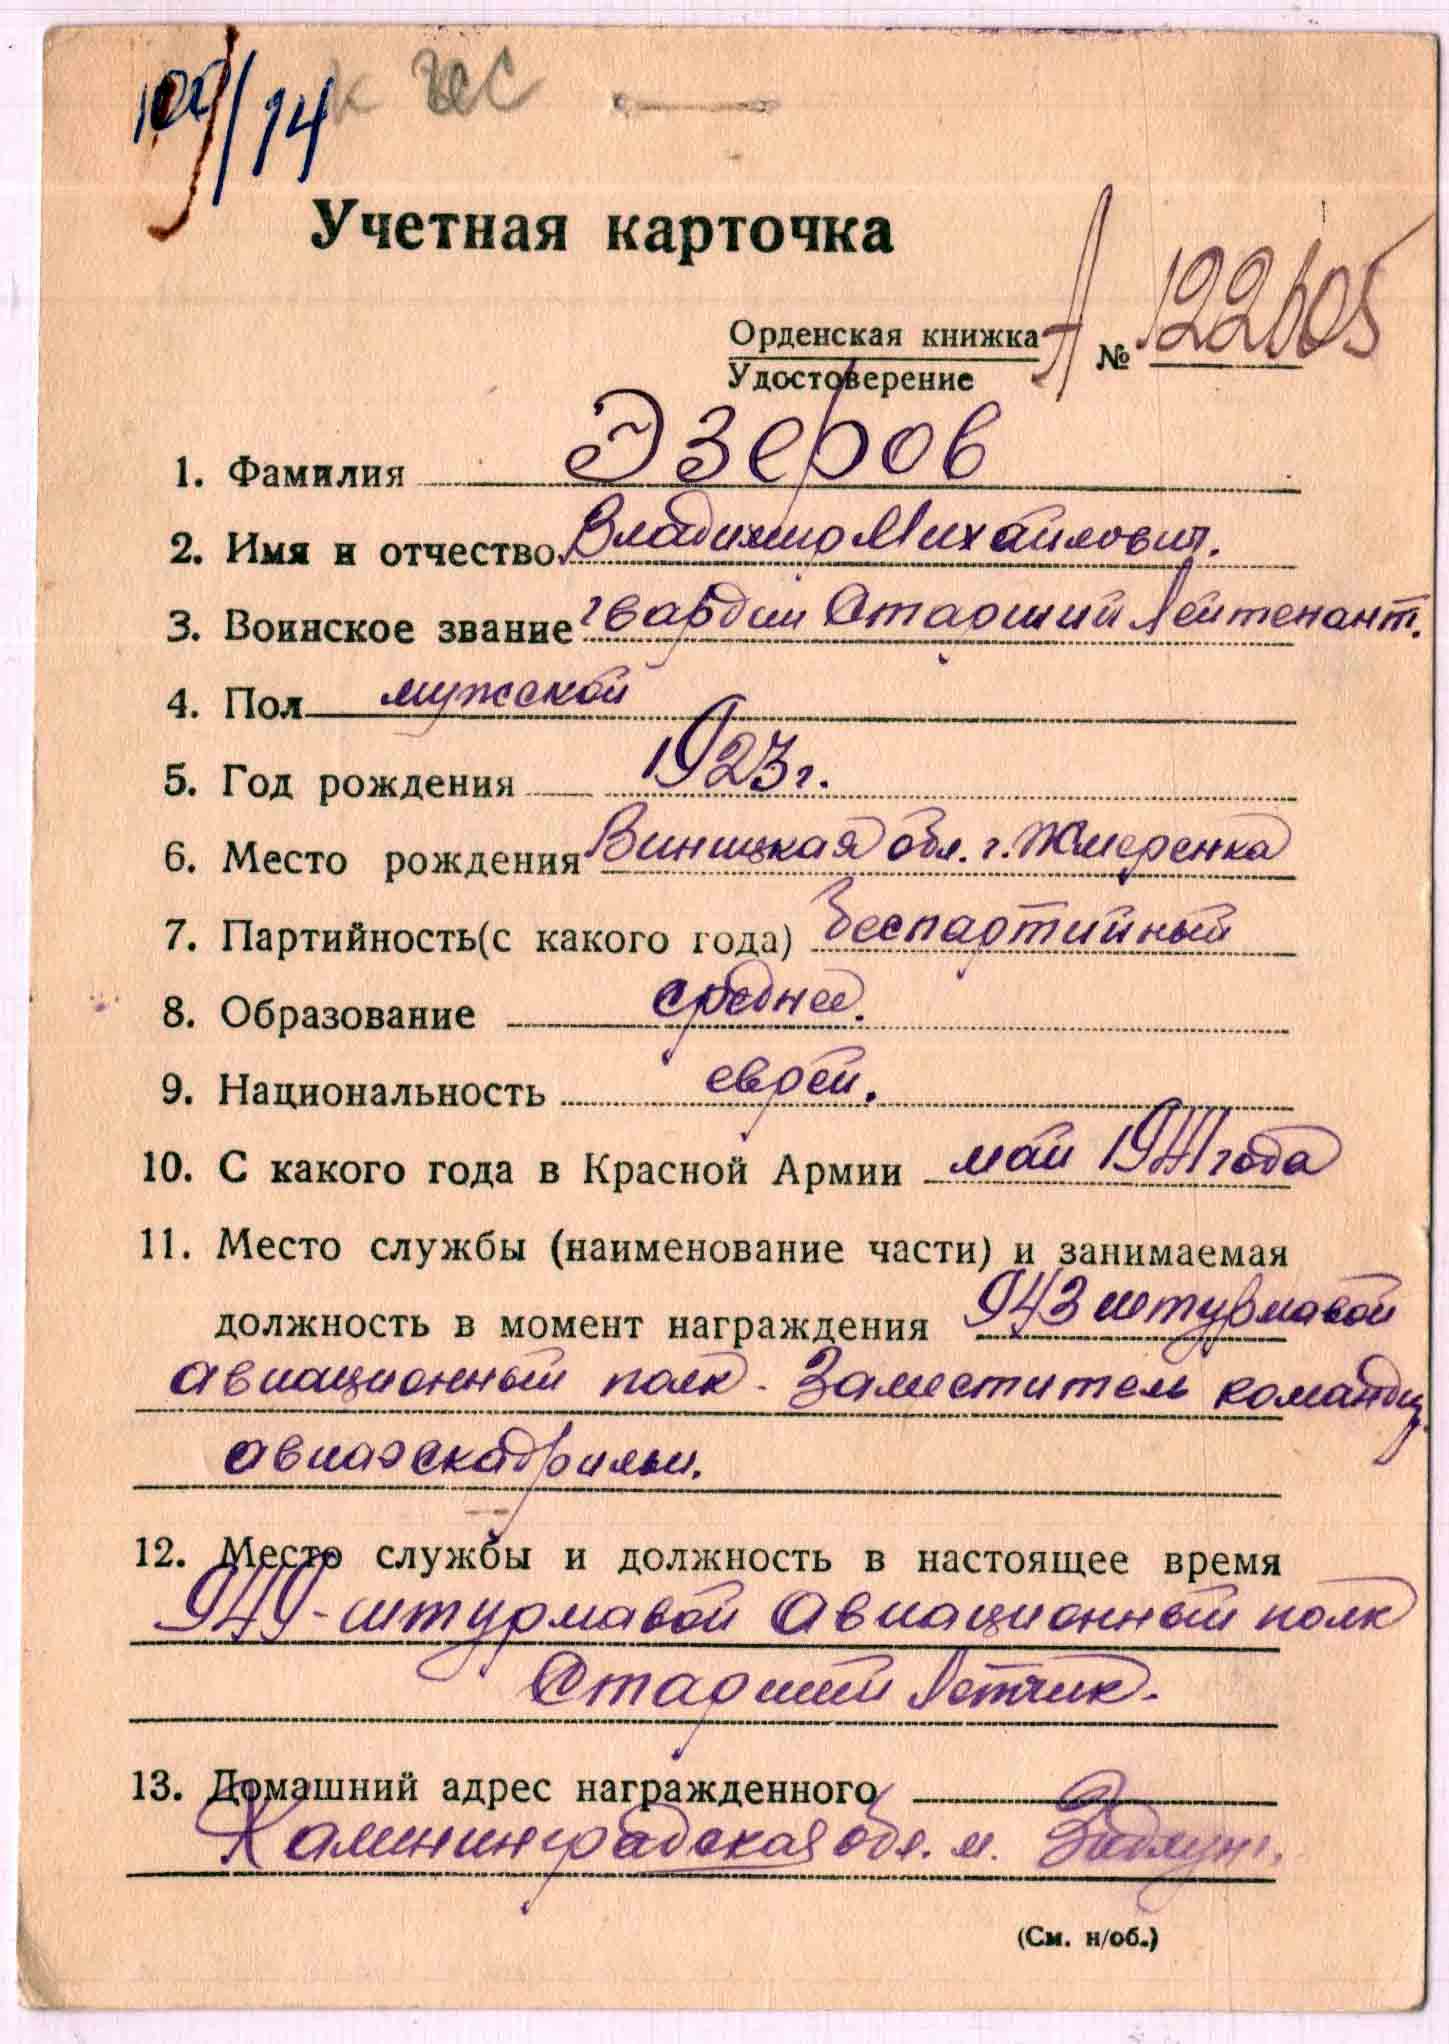 /14 к ЧС
Учетная карточка
Орденская книжка А № 122605
Удостоверение
1. Фамилия Эзеров
2. Имя и отчество Владимир Михайлович.
3. Воинское звание гвардии Старший Лейтенант.
4. Пол мужской
5. Год рождения 1923 г.
6. Место рождения Виницкая обл. г. Жмеренка
7. Партийность(с какого года) Беспартийный
8. Образование среднее.
9. Национальность еврей.
10. С какого года в Красной Армии май 1941 года
11. Место службы (наименование части) и занимаемая
должность в момент награждения 943 штурмавой
авиационный полк. Заместитель командир
авиаэскадрильи.
12. Место службы и должность в настоящее время
949-штурмавой Авиационный полк
Старший Летчик.
13. Домашний адрес награжденного
Калининградская обл. м.
(См. н/об.)